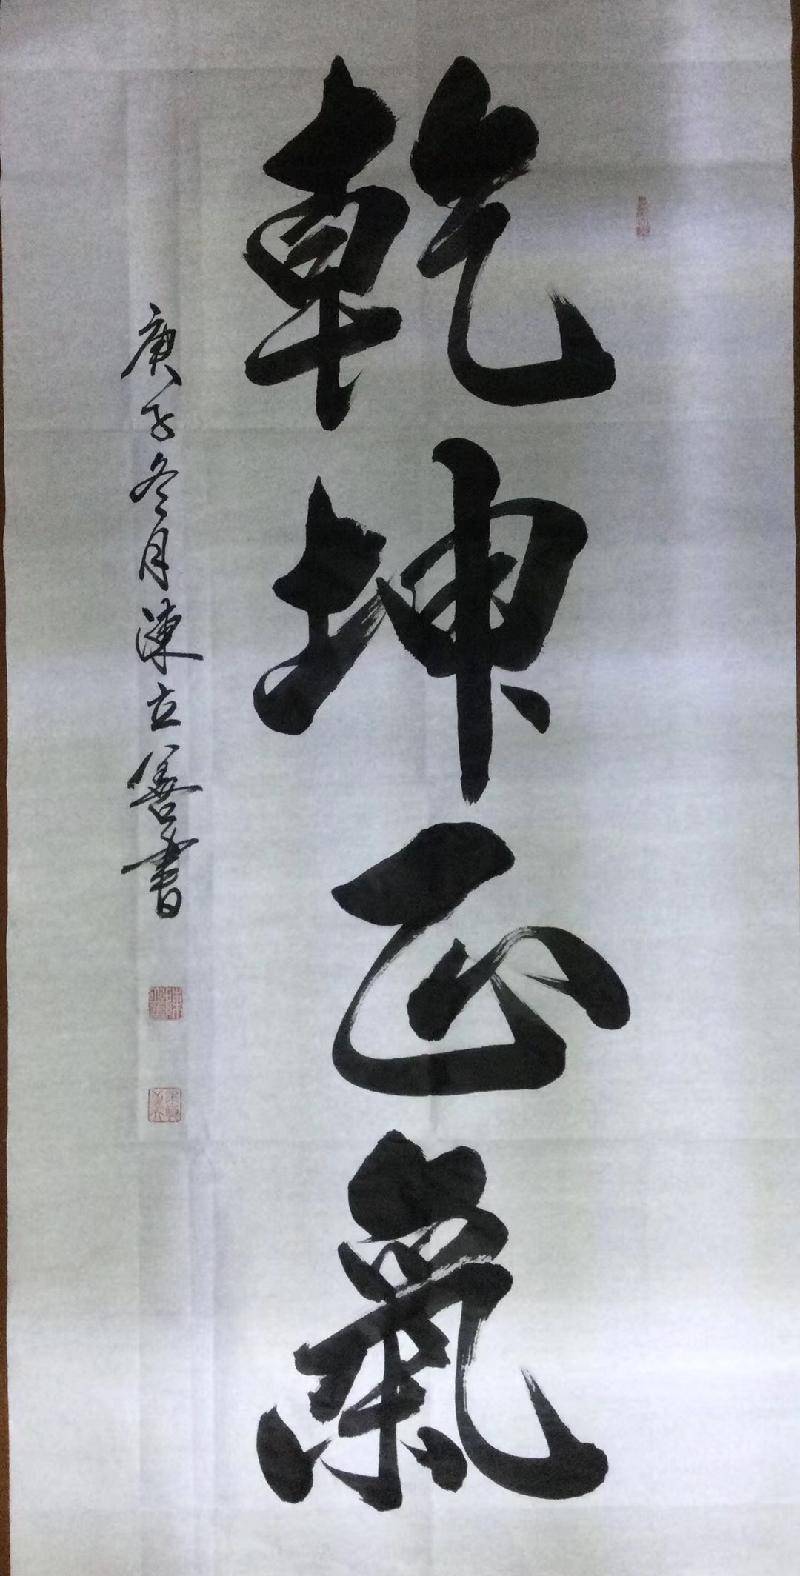 乾坤正氣
庚子冬月陳立善書